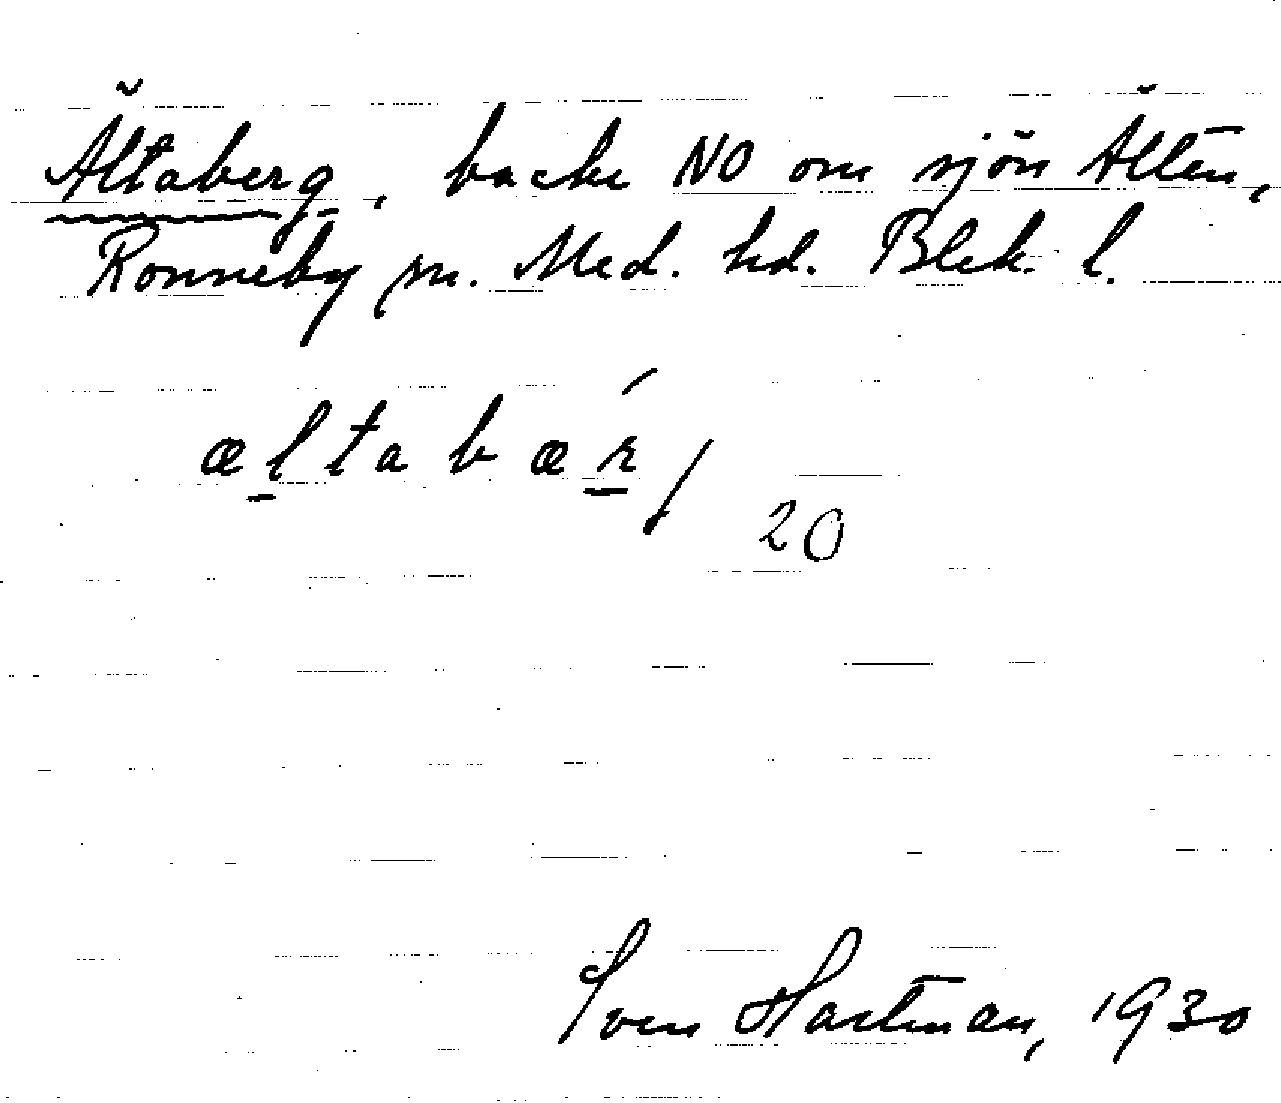 Ältaberg, backe NO om sjön Älten,
Ronneby sn. Med. hd. Blek. l.
æltabær/
20
Sven Hartman, 1930